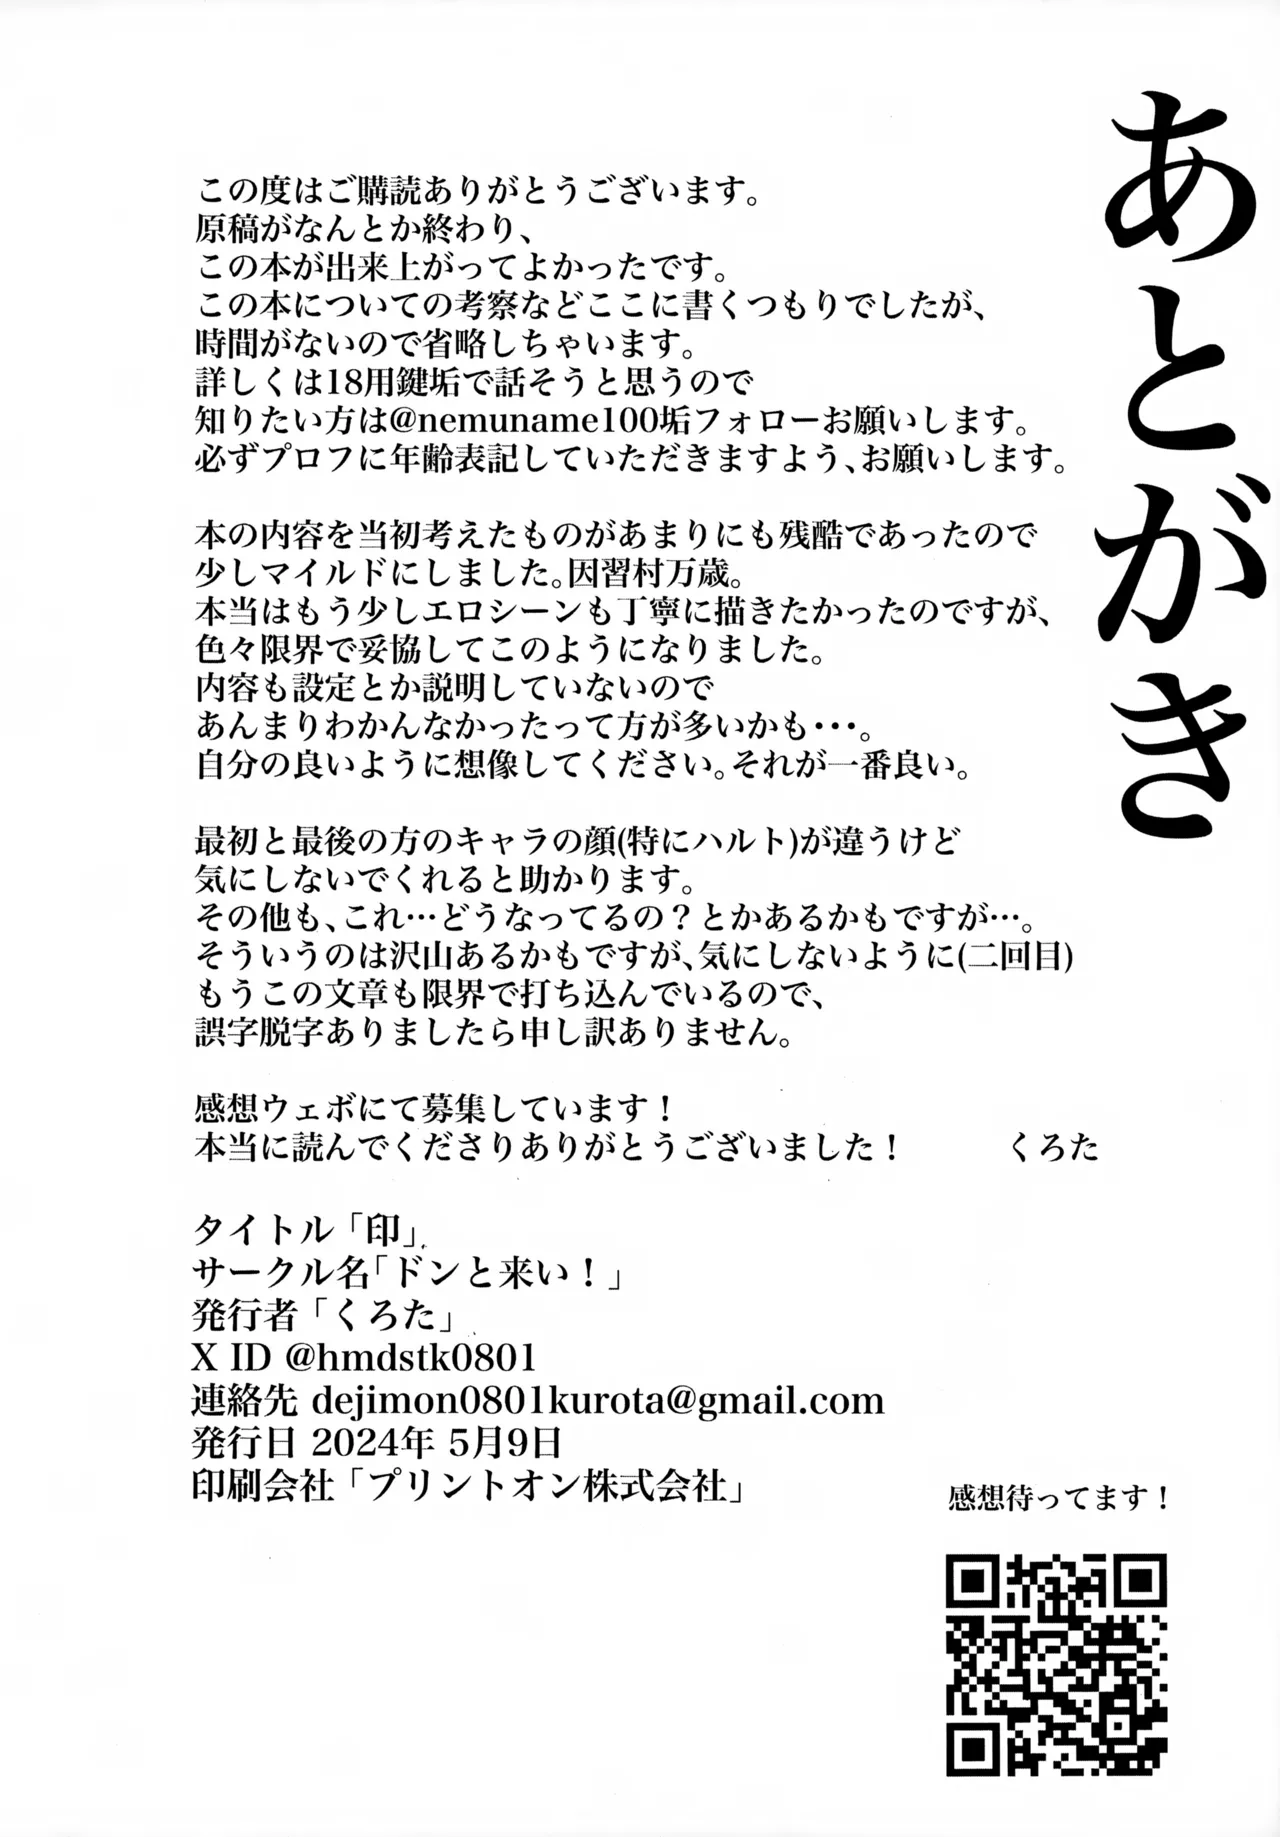 あとがき
この度はご購読ありがとうございます。
原稿がなんとか終わり、
この本が出来上がってよかったです。
この本についての考察などここに書くつもりでしたが、
時間がないので省略しちゃいます。
詳しくは18用鍵垢で話そうと思うので
知りたい方は@nemuname100垢フォローお願いします。
必ずプロフに年齢表記していただきますよう、お願いします。
本の内容を当初考えたものがあまりにも残酷であったので
少しマイルドにしました。因習村万歳。
本当はもう少しエロシーンも丁寧に描きたかったのですが、
色々限界で妥協してこのようになりました。
内容も設定とか説明していないので
あんまりわかんなかったって方が多いかも・・・。
自分の良いように想像してください。それが一番良い。
最初と最後の方のキャラの顔(特にハルト)が違うけど
気にしないでくれると助かります。
その他も、これ…どうなってるの？とかあるかもですが…。
そういうのは沢山あるかもですが、気にしないように(二回目)
もうこの文章も限界で打ち込んでいるので、
誤字脱字ありましたら申し訳ありません。
感想ウェボにて募集しています！
本当に読んでくださりありがとうございました！ くろた
タイトル「印」
サークル名「ドンと来い！」
発行者「くろた」
X ID @hmdstk0801
連絡先 dejimon0801kurota@gmail.com
発行日 2024年 5月9日
印刷会社「プリントオン株式会社」
感想待ってます！